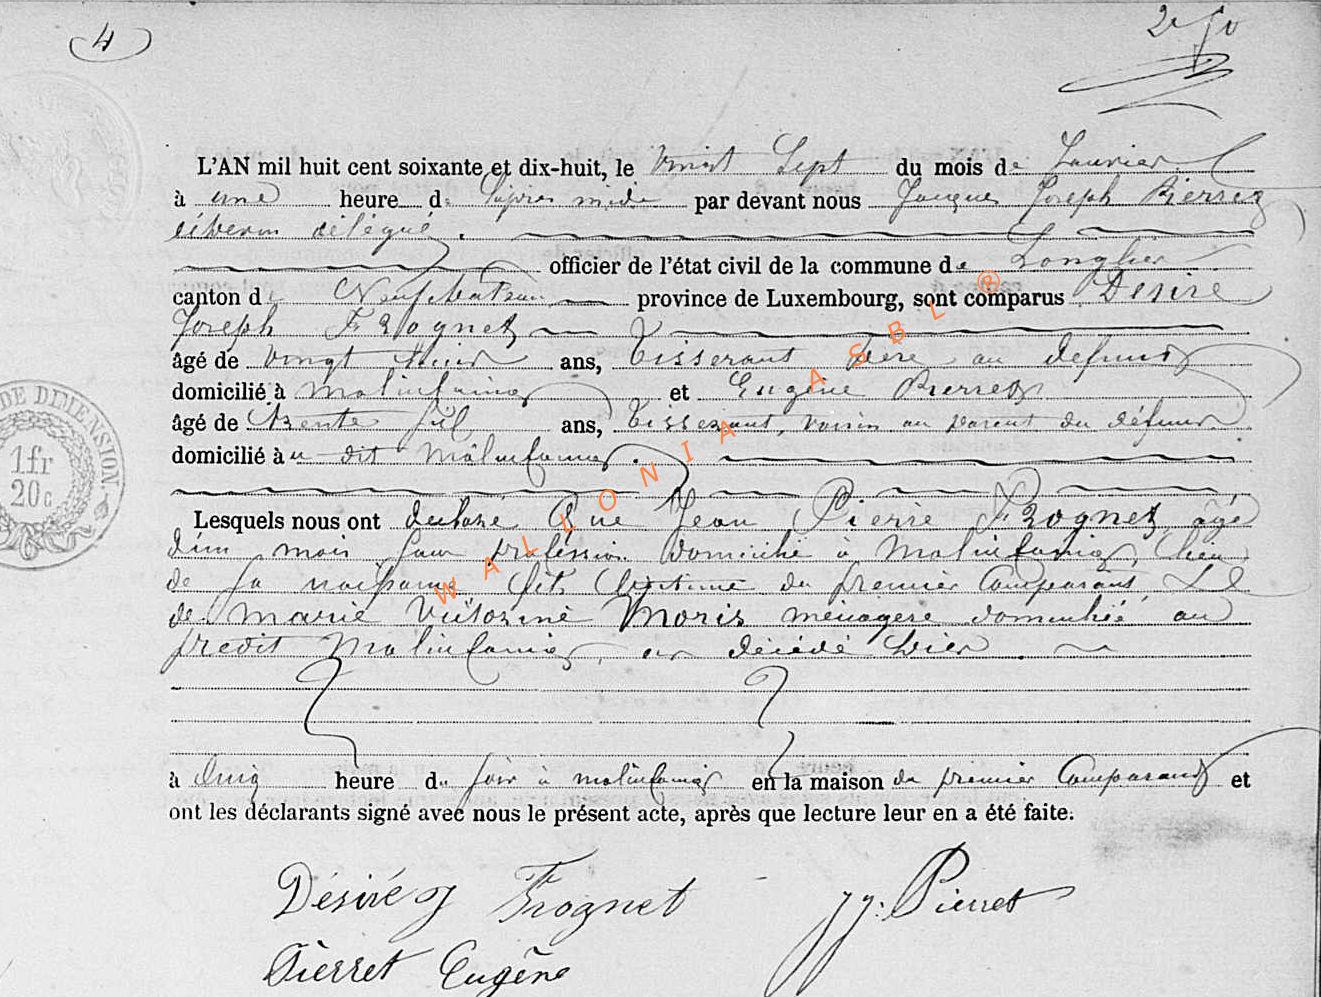 4
L'AN mil huit cent soixante et dix-huit, le Vingt Sept du mois de Janvier
à une heure de l'après midi par devant nous Jacques Joseph Pierret
échevin délégué.
officier de l'état civil de la commune de Longlier
canton de Neufchateau province de Luxembourg, sont comparus Desiré
Joseph Frognet
âgé de vingt ans, Tisserant père au defunt
domicilié à Molinfaing et Eugène Pierret
âgé de Trente ans, Tisserant, voisin au parent du défunt
domicilié à u dit Molinfaing.
Lesquels nous ont declaré Que Jean Pierre Frognet, âgé
d'un mois sans profession domicilié à Molinfaing, lieu
de sa naissance fils légitime du premier Comparant &
de Marie Victorine Moris ménagère domiciliée au
predit Molinfaing, est décédé hier.
à Cinq heure du soir à molinfaing en la maison du premier Comparant et
ont les déclarants signé avec nous le présent acte, après que lecture leur en a été faite.
Désiré J Frognet
JJ. Pierret
Pierret Eugène
DE DIMENSION
1fr
20c
WALLONIA ASBL ®